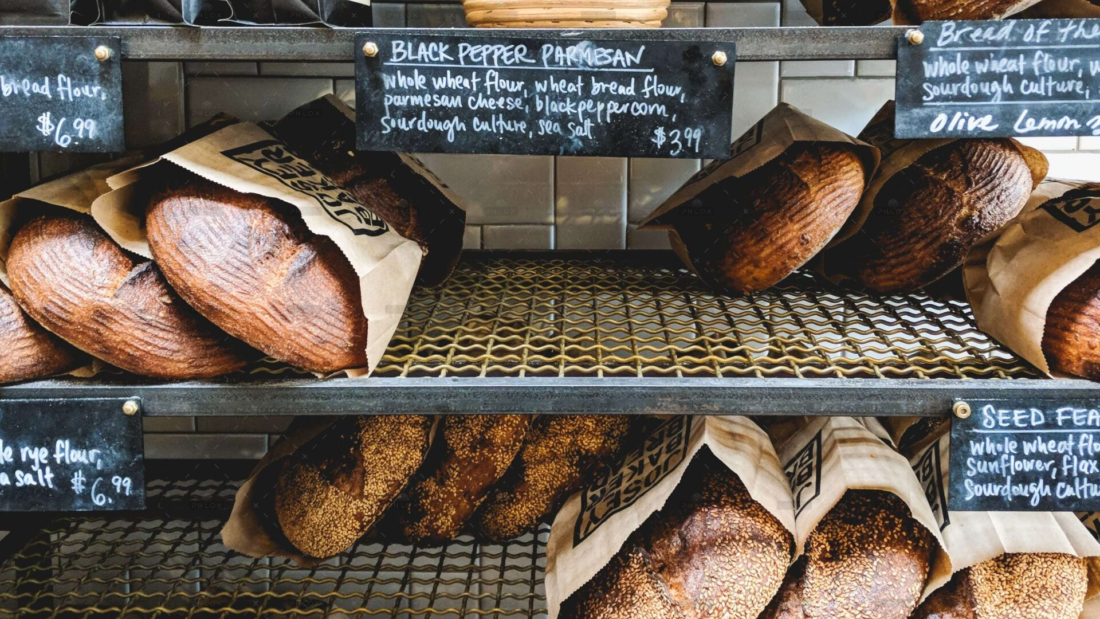 bread flour,
$6.99
BLACK PEPPER PARMESAN
whole wheat flour, wheat bread flour,
parmesan cheese, blackpeppercorn,
sourdough culture, sea salt
$3.99
Bread of the
whole wheat flour, w
sourdough culture,
Olive Lemon
JOSEY
BAKER
le rye flour,
a salt $6.99
JOSEY
BAKER
BREAD
SEED FEA
whole wheat flo
Sunflower, flax
Sourdough cultu